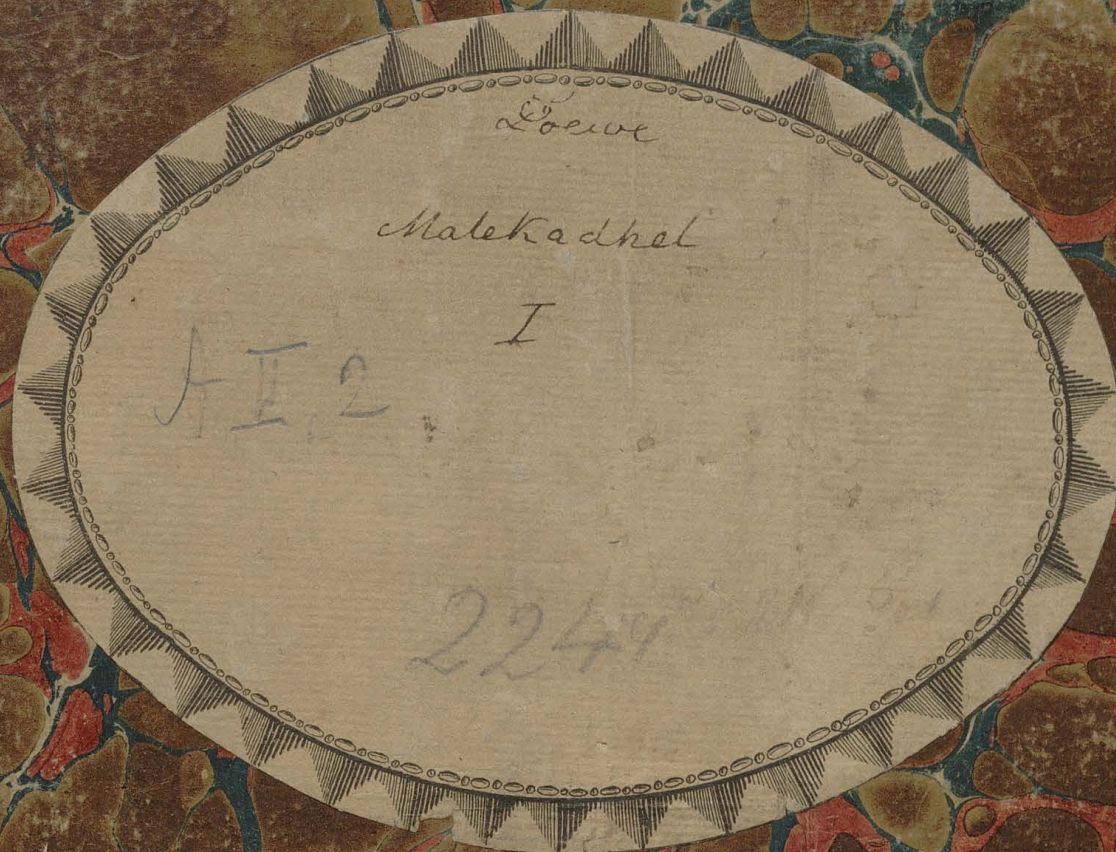 Loewe
Malekadhel
I
A II, 2
224